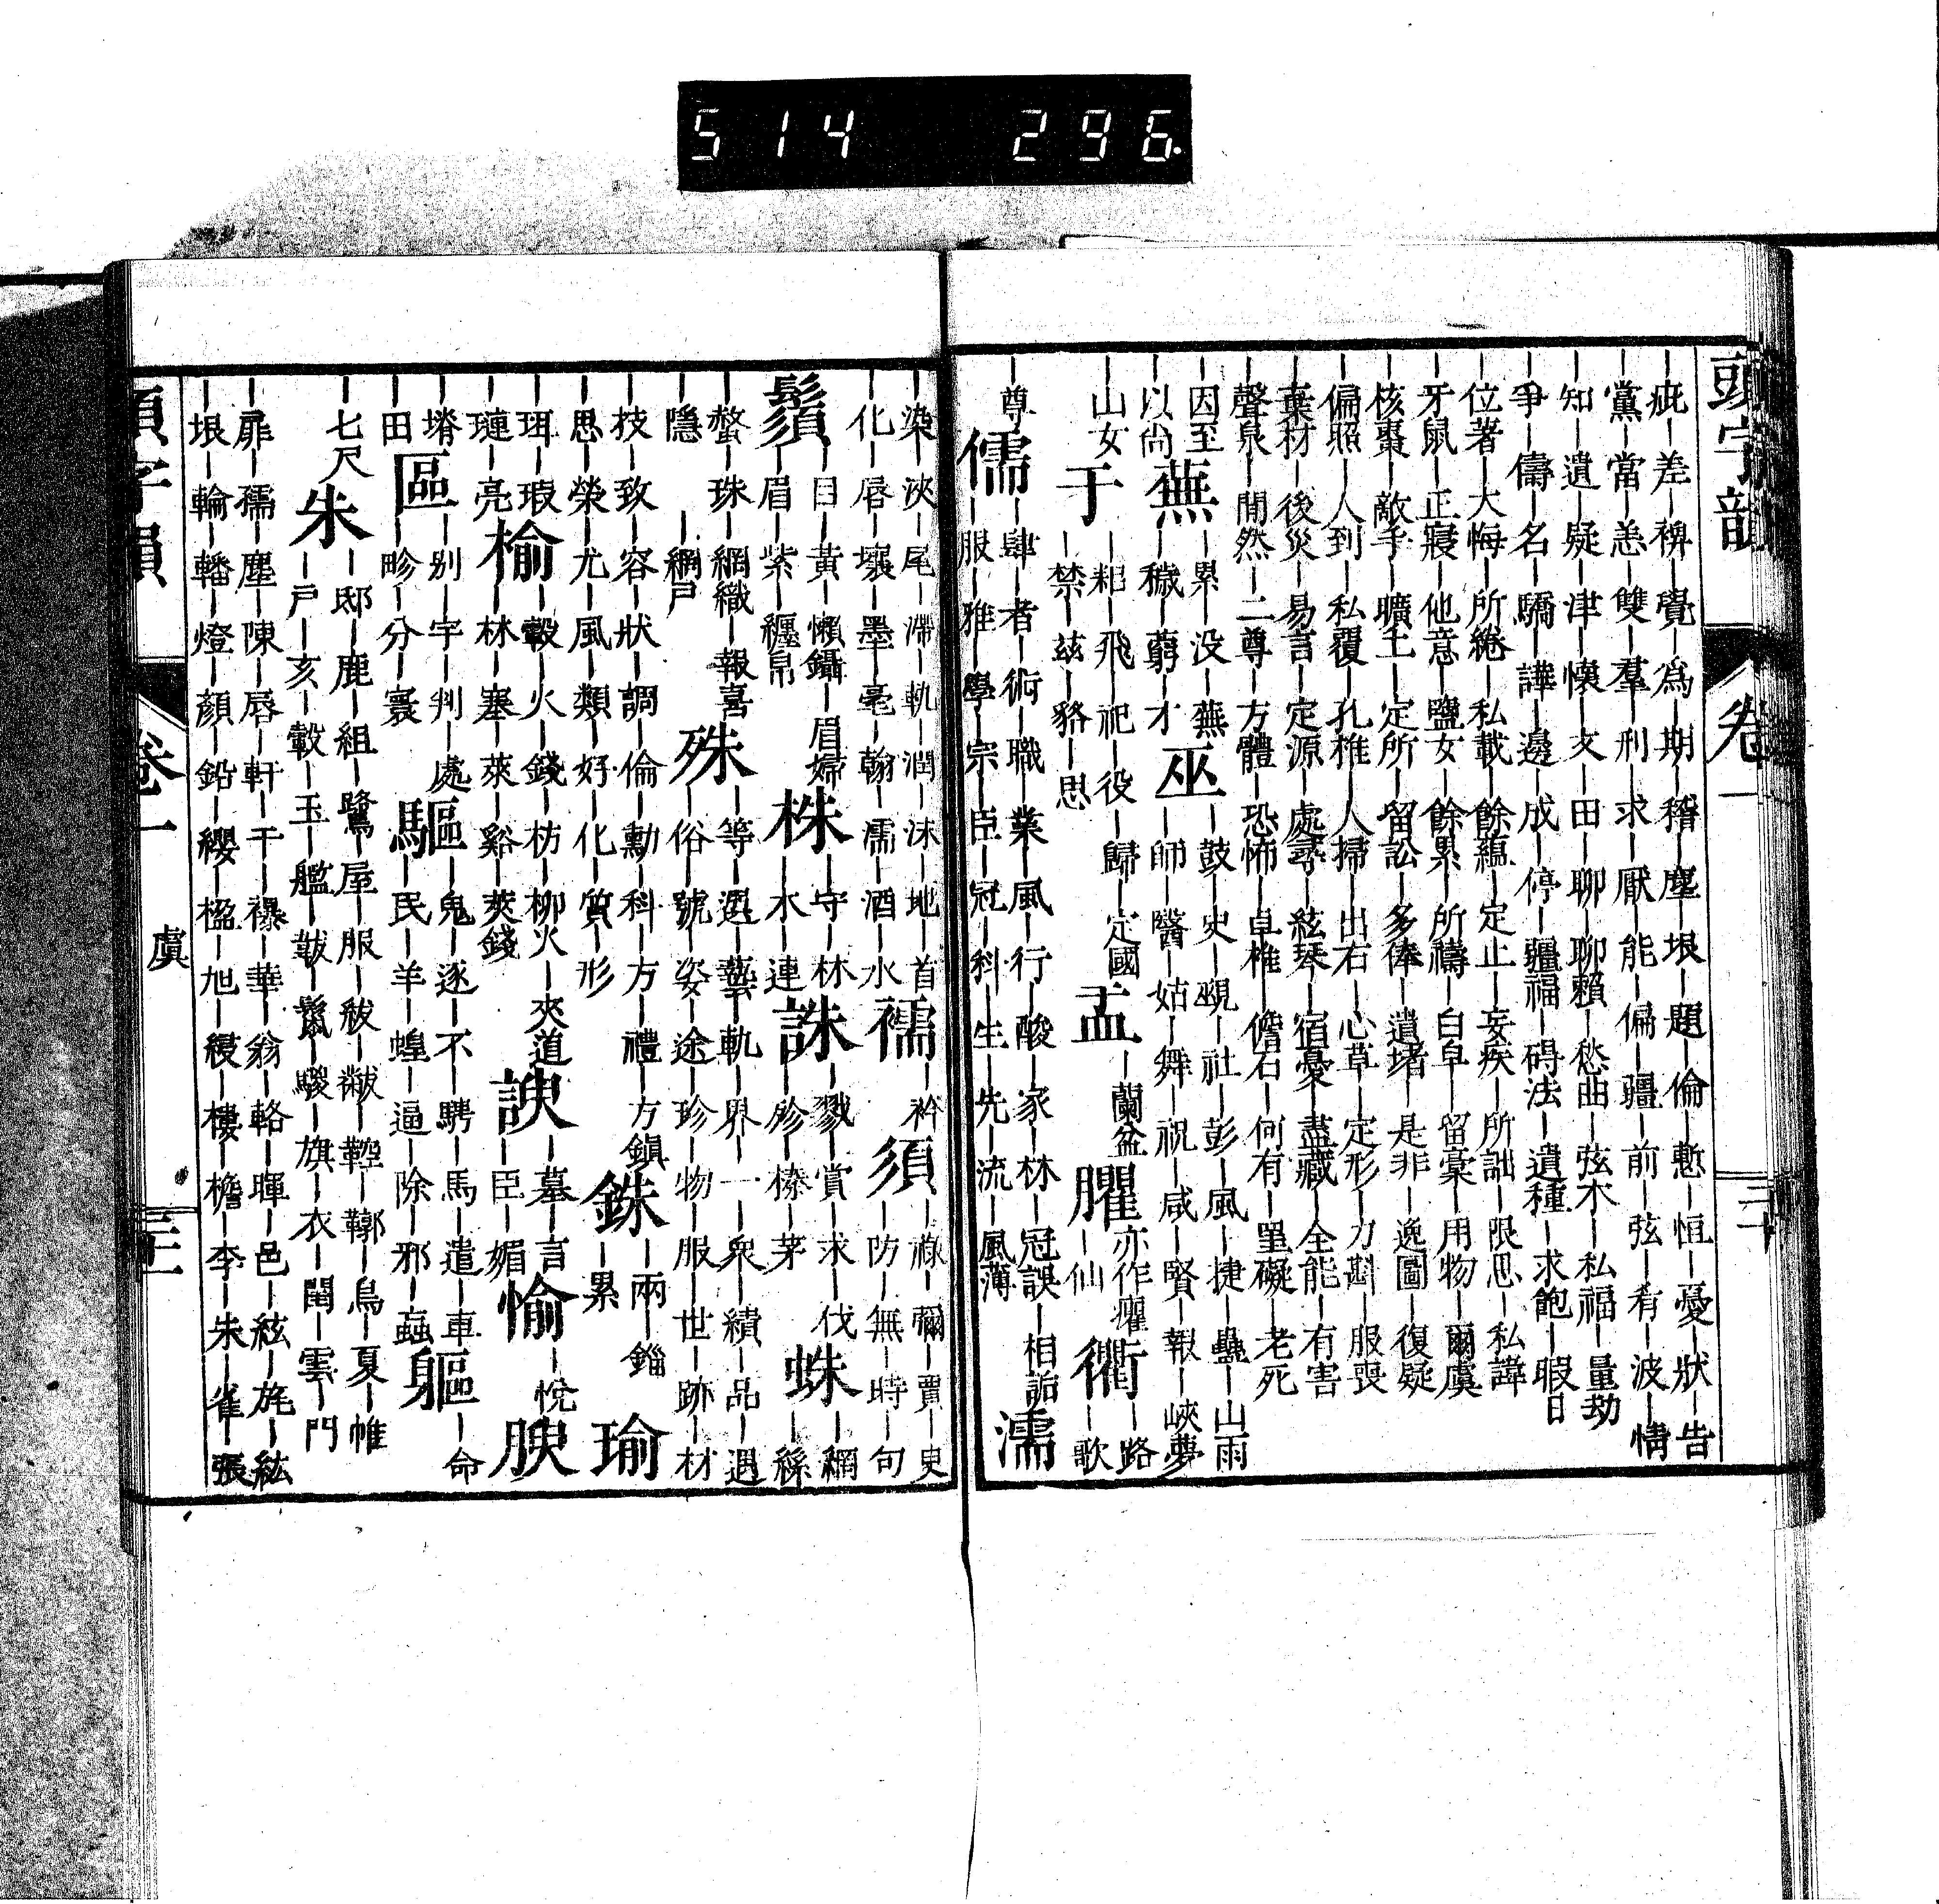 514 296.
頭字韻 卷一 二十
｜疵｜差｜稗｜覺｜為｜期｜稽｜塵｜垠｜題｜倫｜慙｜恒｜憂｜狀｜告
｜黨｜當｜恙｜雙｜羣｜刑｜求｜厭｜能｜偏｜疆｜前｜弦｜肴｜波｜情
｜知｜遺｜疑｜津｜懷｜文｜田｜聊｜聊賴｜愁｜曲｜弦木｜私福｜量劫
｜爭｜儔｜名｜驕｜譁｜邊｜成｜停｜疆福｜碍法｜遺種｜求飽｜暇日
｜位著｜大悔｜所綣｜私載｜餘蘊｜定止｜妄疾｜所詘｜限思｜私諱
｜牙鼠｜正寢｜他意｜鹽女｜餘累｜所禱｜白皁｜留棄｜用物｜爾虞
｜核棗｜敵手｜曠土｜定所｜留訟｜多俸｜遺堵｜是非｜逸圖｜復疑
｜偏照｜人到｜私覆｜孔椎｜人掃｜出右｜心草｜定形｜力斟｜服喪
｜棄材｜後災｜易言｜定源｜處尋｜絃琴｜宿憂｜盡藏｜全能｜有害
｜聲泉｜間然｜二尊｜方體｜恐怖｜卓椎｜儋石｜何有｜罣礙｜老死
｜因至 蕪｜累｜没｜蕪 巫｜鼓｜史｜覡｜社｜彭｜風｜捷｜蠱｜山雨
｜以尚｜穢｜藭｜才｜師｜醫｜姑｜舞｜祝｜咸｜賢｜報｜峽夢
｜山女 于｜耜｜飛｜祀｜役｜歸｜定國 盂｜蘭盆 臞亦作癯 衢｜路
｜禁｜茲｜貉｜思｜仙｜歌
｜尊 儒｜肆｜者｜術｜職｜業｜風｜行｜酸｜家｜林｜冠誤｜相詬 濡
｜服｜雅｜學｜宗｜臣｜冠｜科｜生｜先｜流｜風薄
｜染｜浹｜尾｜滯｜軌｜潤｜沫｜地｜首 襦｜衿 須｜祿｜彌｜賈｜史
｜化｜唇｜壤｜墨｜毫｜翰｜濡｜酒｜水｜防｜無｜時｜句
鬚｜目｜黃｜懶鑷｜眉婦 株｜守｜林 誅｜戮｜賞｜求｜伐 蛛｜網
｜眉｜紫｜纏帛｜水｜連｜殄｜榛｜茅｜絲
｜蝥｜珠｜網織｜報喜 殊｜等｜選｜藝｜軌｜界｜一｜衆｜績｜品｜遇
｜隱｜網戸｜俗｜號｜姿｜途｜珍｜物｜服｜世｜跡｜材
｜技｜致｜容｜狀｜調｜倫｜勳｜科｜方｜禮｜方鎮 銖｜兩｜錙 瑜
｜思｜榮｜尤｜風｜類｜好｜化｜質｜形｜累
｜珥｜瑕 榆｜轂｜火｜錢｜枋｜柳火｜夾道 諛｜墓｜言 愉｜悅 腴
｜璉｜亮｜林｜塞｜萊｜谿｜莢錢｜臣｜媚
｜塉 區｜别｜宇｜判｜處 驅｜鬼｜逐｜不｜騁｜馬｜遣｜車 軀｜命
｜田｜畛｜分｜寰｜民｜羊｜蝗｜逼｜除｜邪｜蝱
｜七尺 朱｜邸｜鹿｜組｜鷺｜屋｜服｜紱｜黻｜鞓｜鞹｜鳥｜夏｜帷
｜戸｜亥｜轂｜玉｜艦｜韍｜鬣｜騣｜旗｜衣｜閨｜雲｜門
｜扉｜孺｜塵｜陳｜唇｜軒｜干｜襮｜華｜翁｜輅｜暉｜邑｜絃｜旄｜紘
｜垠｜輪｜轓｜燈｜顏｜鉛｜纓｜楹｜旭｜綬｜樓｜檐｜李｜朱｜雀｜張
頭字韻 卷一 虞 二十一